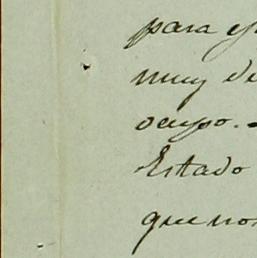 para
muy de
ocupo.
Estado
que nos